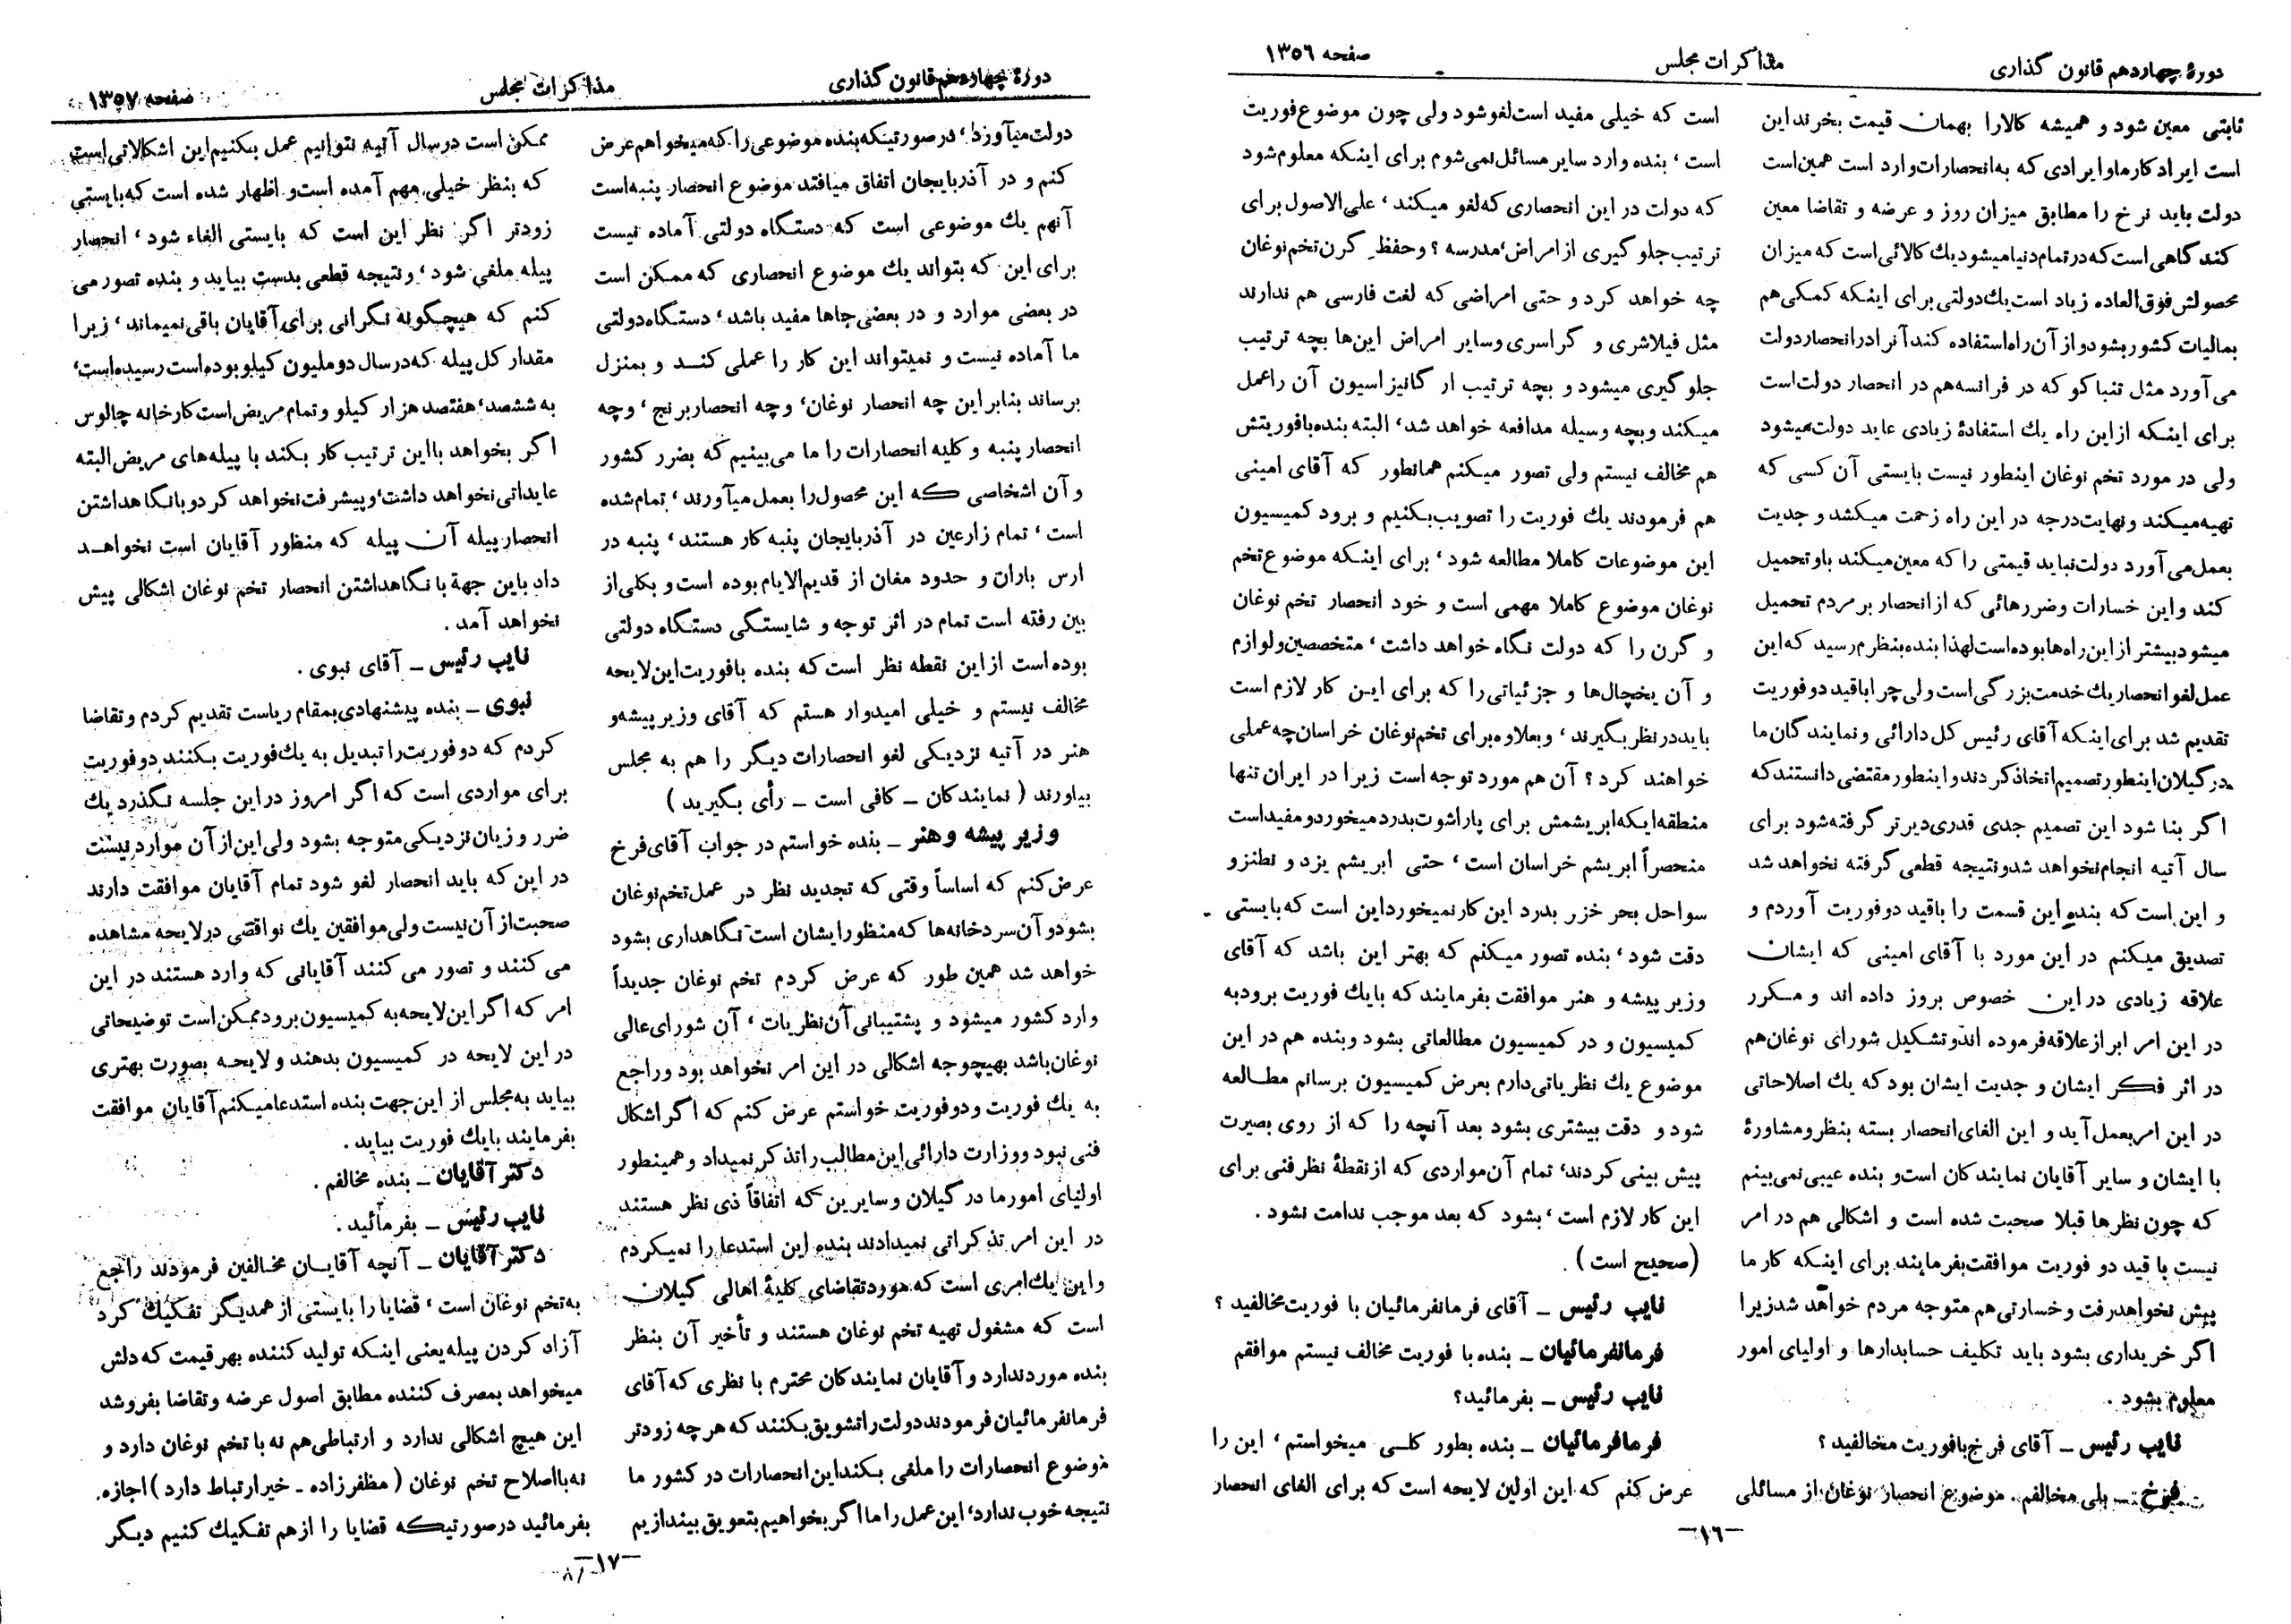 دورهٔ چهاردهم قانون گذاری
مذاکرات مجلس
صفحه ۱۳۵۶
ثابتی معین شود و همیشه کالارا بهمان قیمت بخرند این
است ایراد کار ما و ایرادی که به انحصارات وارد است همین است
دولت باید نرخ را مطابق میزان روز و عرضه و تقاضا معین
کند گاهی است که در تمام دنیا میشود یك کالائی است که میزان
محصولش فوق العاده زیاد است یك دولتی برای اینکه کمکی هم
بمالیات کشور بشود و از آن راه استفاده کند آنرا در انحصار دولت
می آورد مثل تنباکو که در فرانسه هم در انحصار دولت است
برای اینکه از این راه یك استفادهٔ زیادی عاید دولت میشود
ولی در مورد تخم نوغان اینطور نیست بایستی آن کسی که
تهیه میکند و نهایت درجه در این راه زحمت میکشد و جدیت
بعمل می آورد دولت نباید قیمتی را که معین میکند باو تحمیل
کند و این خسارات و ضررهائی که از انحصار بر مردم تحمیل
میشود بیشتر از این راه ها بوده است لهذا بنده بنظرم رسید که این
عمل لغو انحصار یك خدمت بزرگی است ولی چرا با قید دو فوریت
تقدیم شد برای اینکه آقای رئیس کل دارائی و نمایندگان ما
در گیلان اینطور تصمیم اتخاذ کردند و اینطور مقتضی دانستند که
اگر بنا شود این تصمیم جدی قدری دیرتر گرفته شود برای
سال آتیه انجام نخواهد شد و نتیجه قطعی گرفته نخواهد شد
و این است که بنده این قسمت را با قید دو فوریت آوردم و
تصدیق میکنم در این مورد با آقای امینی که ایشان
علاقه زیادی در این خصوص بروز داده اند و مکرر
در این امر ابراز علاقه فرموده اند و تشکیل شورای نوغان هم
در اثر فکر ایشان و جدیت ایشان بود که یك اصلاحاتی
در این امر بعمل آید و این الغای انحصار بسته بنظر و مشاورهٔ
با ایشان و سایر آقایان نمایندگان است و بنده عیبی نمی بینم
که چون نظرها قبلا صحبت شده است و اشکالی هم در امر
نیست با قید دو فوریت موافقت بفرمایند برای اینکه کار ما
پیش نخواهد رفت و خسارتی هم متوجه مردم خواهد شد زیرا
اگر خریداری بشود باید تکلیف حسابدارها و اولیای امور
معلوم بشود .
نایب رئیس ـ آقای فرخ با فوریت مخالفید ؟
فرخ ـ بلی مخالفم . موضوع انحصار نوغان از مسائلی
است که خیلی مفید است لغو شود ولی چون موضوع فوریت
است ، بنده وارد سایر مسائل نمی شوم برای اینکه معلوم شود
که دولت در این انحصاری که لغو میکند ، علی الاصول برای
ترتیب جلوگیری از امراض ، مدرسه ؟ و حفظ گرن تخم نوغان
چه خواهد کرد و حتی امراضی که لغت فارسی هم ندارند
مثل فیلاشری و گراسری و سایر امراض این ها بچه ترتیب
جلوگیری میشود و بچه ترتیب ارگانیزاسیون آن را عمل
میکند و بچه وسیله مدافعه خواهد شد ، البته بنده با فوریتش
هم مخالف نیستم ولی تصور میکنم همانطور که آقای امینی
هم فرمودند یك فوریت را تصویب بکنیم و برود کمیسیون
این موضوعات کاملا مطالعه شود ، برای اینکه موضوع تخم
نوغان موضوع کاملا مهمی است و خود انحصار تخم نوغان
و گرن را که دولت نگاه خواهد داشت ، متخصصین و لوازم
و آن یخچال ها و جزئیاتی را که برای این کار لازم است
باید در نظر بگیرند ، و بعلاوه برای تخم نوغان خراسان چه عملی
خواهند کرد ؟ آن هم مورد توجه است زیرا در ایران تنها
منطقه ایکه ابریشمش برای پاراشوت بدرد میخورد و مفید است
منحصراً ابریشم خراسان است ، حتی ابریشم یزد و نطنز و
سواحل بحر خزر بدرد این کار نمیخورد این است که بایستی
دقت شود ، بنده تصور میکنم که بهتر این باشد که آقای
وزیر پیشه و هنر موافقت بفرمایند که با یك فوریت برود به
کمیسیون و در کمیسیون مطالعاتی بشود و بنده هم در این
موضوع یك نظریاتی دارم بعرض کمیسیون برسانم مطالعه
شود و دقت بیشتری بشود بعد آنچه را که از روی بصیرت
پیش بینی کردند ، تمام آن مواردی که از نقطهٔ نظر فنی برای
این کار لازم است ، بشود که بعد موجب ندامت نشود .
(صحیح است) .
نایب رئیس ـ آقای فرمانفرمائیان با فوریت مخالفید ؟
فرمانفرمائیان ـ بنده با فوریت مخالف نیستم موافقم
نایب رئیس ـ بفرمائید ؟
فرمانفرمائیان ـ بنده بطور کلی میخواستم ، این را
عرض کنم که این اولین لایحه است که برای الغای انحصار
ـ۱۶ـ
دورهٔ چهاردهم قانون گذاری
مذاکرات مجلس
صفحه ۱۳۵۷
دولت میآورد ، در صورتیکه بنده موضوعی را که میخواهم عرض
کنم و در آذربایجان اتفاق میافتد موضوع انحصار پنبه است
آنهم یك موضوعی است که دستگاه دولتی آماده نیست
برای این که بتواند یك موضوع انحصاری که ممکن است
در بعضی موارد و در بعضی جاها مفید باشد ، دستگاه دولتی
ما آماده نیست و نمیتواند این کار را عملی کند و بمنزل
برساند بنابراین چه انحصار نوغان ، وچه انحصار برنج ، وچه
انحصار پنبه و کلیه انحصارات را ما می بینیم که بضرر کشور
و آن اشخاصی که این محصول را بعمل میآورند ، تمام شده
است ، تمام زارعین در آذربایجان پنبه کار هستند ، پنبه در
ارس باران و حدود مغان از قدیم الایام بوده است و بکلی از
بین رفته است تمام در اثر توجه و شایستگی دستگاه دولتی
بوده است از این نقطه نظر است که بنده با فوریت این لایحه
مخالف نیستم و خیلی امیدوار هستم که آقای وزیر پیشه و
هنر در آتیه نزدیکی لغو انحصارات دیگر را هم به مجلس
بیاورند ( نمایندگان ـ کافی است ـ رأی بگیرید )
وزیر پیشه و هنر ـ بنده خواستم در جواب آقای فرخ
عرض کنم که اساساً وقتی که تجدید نظر در عمل تخم نوغان
بشود و آن سردخانه ها که منظور ایشان است نگاهداری بشود
خواهد شد همین طور که عرض کردم تخم نوغان جدیداً
وارد کشور میشود و پشتیبانی آن نظریات ، آن شورای عالی
نوغان باشد بهیچوجه اشکالی در این امر نخواهد بود و راجع
به یك فوریت و دو فوریت خواستم عرض کنم که اگر اشکال
فنی نبود و وزارت دارائی این مطالب را تذکر نمیداد و همینطور
اولیای امور ما در گیلان و سایرین که اتفاقاً ذی نظر هستند
در این امر تذکراتی نمیدادند بنده این استدعا را نمیکردم
و این یك امری است که مورد تقاضای کلیهٔ اهالی گیلان
است که مشغول تهیه تخم نوغان هستند و تأخیر آن بنظر
بنده مورد ندارد و آقایان نمایندگان محترم با نظری که آقای
فرمانفرمائیان فرمودند دولت را تشویق بکنند که هر چه زودتر
موضوع انحصارات را ملغی بکند این انحصارات در کشور ما
نتیجه خوب ندارد ، این عمل را ما اگر بخواهیم بتعویق بیندازیم
ممکن است در سال آتیه نتوانیم عمل بکنیم این اشکالاتی است
که بنظر خیلی مهم آمده است و اظهار شده است که بایستی
زودتر اگر نظر این است که بایستی الغاء شود ، انحصار
پیله ملغی شود ، و نتیجه قطعی بدست بیاید و بنده تصور می
کنم که هیچگونه نگرانی برای آقایان باقی نمیماند ، زیرا
مقدار کل پیله که در سال دو ملیون کیلو بوده است رسیده است ،
به ششصد ، هفتصد هزار کیلو و تمام مریض است کارخانه چالوس
اگر بخواهد با این ترتیب کار بکند با پیله های مریض البته
عایداتی نخواهد داشت ، و پیشرفت نخواهد کرد و با نگاهداشتن
انحصار پیله آن پیله که منظور آقایان است نخواهد
داد باین جهة با نگاهداشتن انحصار تخم نوغان اشکالی پیش
نخواهد آمد .
نایب رئیس ـ آقای نبوی .
نبوی ـ بنده پیشنهادی بمقام ریاست تقدیم کردم و تقاضا
کردم که دو فوریت را تبدیل به یك فوریت بکنند دو فوریت
برای مواردی است که اگر امروز در این جلسه نگذرد یك
ضرر و زیان نزدیکی متوجه بشود ولی این از آن موارد نیست
در این که باید انحصار لغو شود تمام آقایان موافقت دارند
صحبت از آن نیست ولی موافقین یك نواقصی در لایحه مشاهده
می کنند و تصور می کنند آقایانی که وارد هستند در این
امر که اگر این لایحه به کمیسیون برود ممکن است توضیحاتی
در این لایحه در کمیسیون بدهند و لایحه بصورت بهتری
بیاید به مجلس از این جهت بنده استدعا میکنم آقایان موافقت
بفرمایند با یك فوریت بیاید .
دکتر آقایان ـ بنده مخالفم .
نایب رئیس ـ بفرمائید .
دکتر آقایان ـ آنچه آقایان مخالفین فرمودند راجع
به تخم نوغان است ، قضایا را بایستی از همدیگر تفکیك کرد
آزاد کردن پیله یعنی اینکه تولید کننده بهر قیمت که دلش
میخواهد بمصرف کننده مطابق اصول عرضه و تقاضا بفروشد
این هیچ اشکالی ندارد و ارتباطی هم نه با تخم نوغان دارد و
نه با اصلاح تخم نوغان ( مظفرزاده ـ خیر ارتباط دارد ) اجازه
بفرمائید در صورتیکه قضایا را از هم تفکیك کنیم دیگر
ـ۱۷ـ